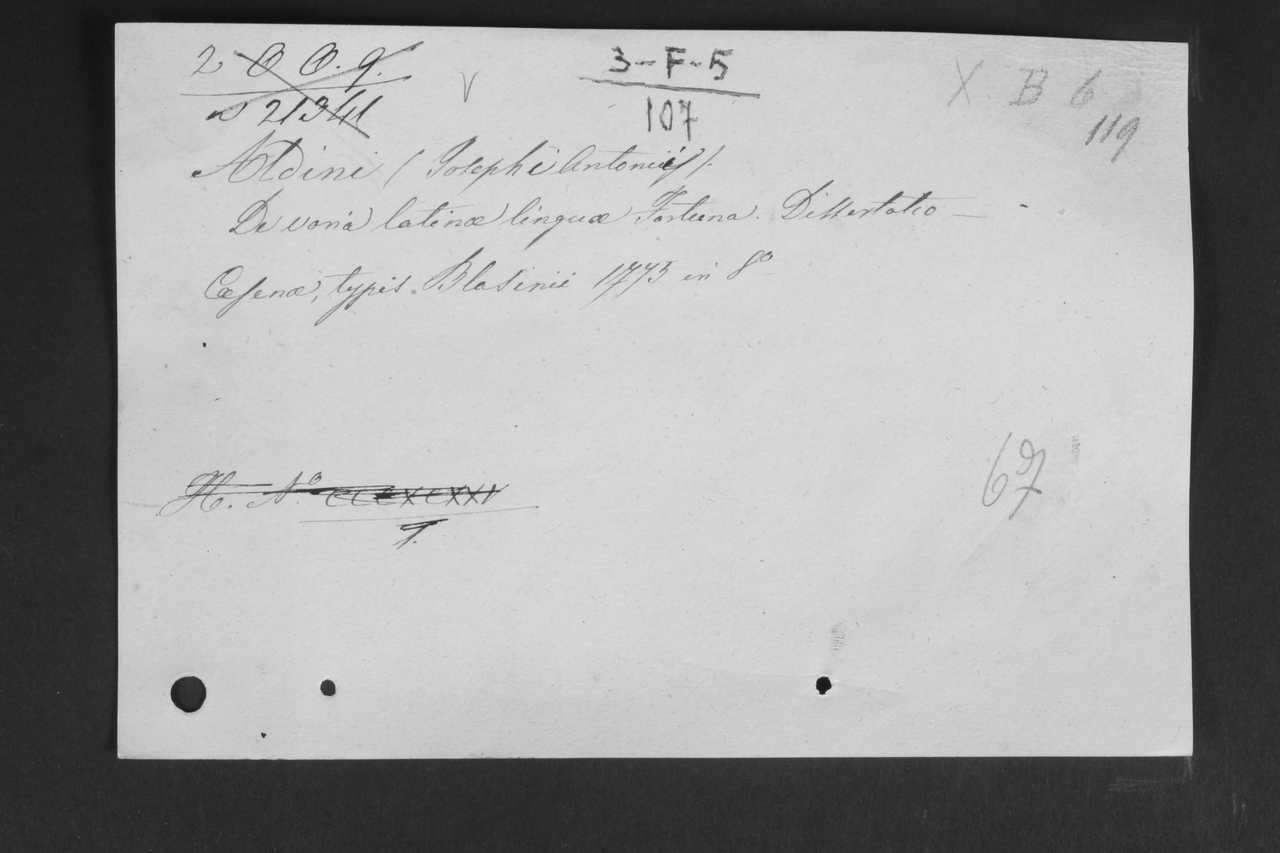 2 O O. 9.
√
3-F-5
107
X B 6
119
Aldini (Josephi Antonii).
De varia latinæ linguæ Fortuna. Dissertatio —
Cæsenæ, typis Blasinii 1775 in 8º
H. Nº CCCXCXXIV
1.
67